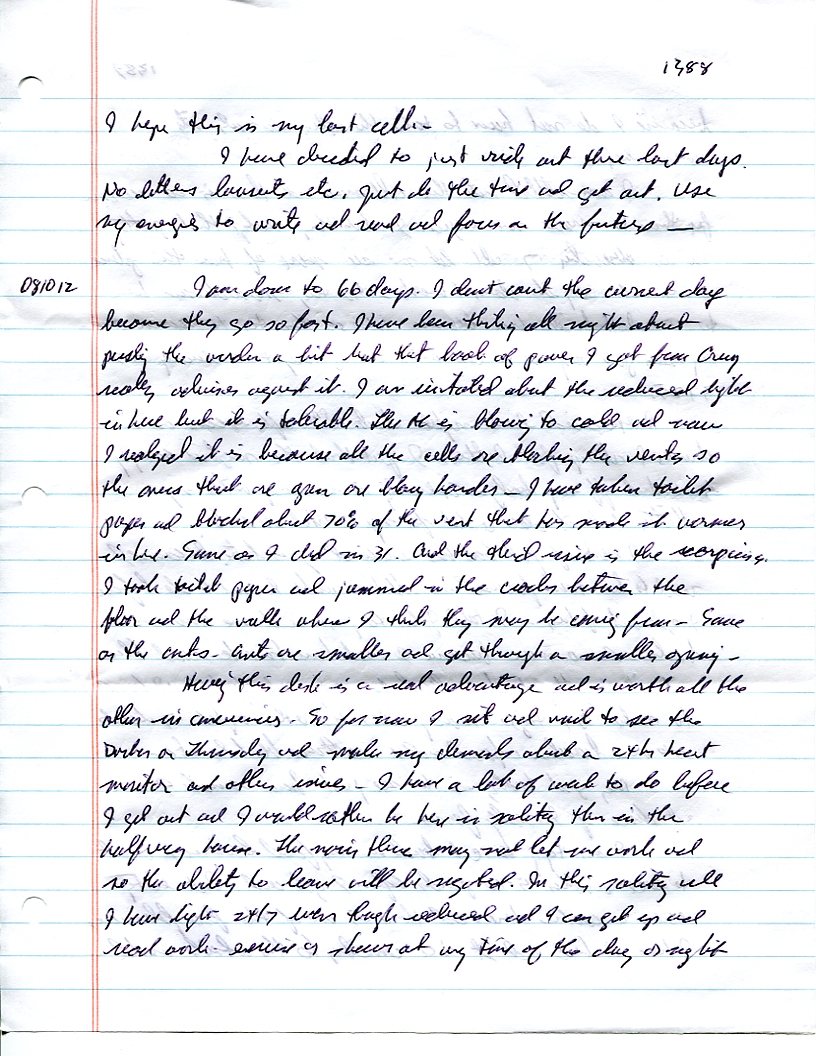 1388
I hope this is my last cell.
I have decided to just ride out these last days.
No letters lawsuits etc. Just do the time and get out. Use
my energies to write and read and focus on the future —
081012 I am down to 66 days. I dont count the current day
because they go so fast. I have been thinking all night about
pushing the warden a bit but that book of power I got from Craig
really advises against it. I am irritated about the reduced light
in here but it is tolerable. The AC is blowing to cold and now
I realized it is because all the cells are blocking the vents so
the ones that are open are blowing harder — I have taken toilet
paper and blocked about 70% of the vent that has made it warmer
in here. Same as I did in 31. And the third issue is the scorpions.
I took toilet paper and jammed in the cracks between the
floor and the walls where I think they may be coming from - Same
as the ants. Ants are smaller and get through a smaller opening -
Having this desk is a real advantage and is worth all the
other inconveniences. So for now I sit and wait to see the
Doctor on Thursday and make my demands about a 24 hr heart
monitor and other issues - I have a lot of work to do before
I get out and I would rather be here in solitary then in the
halfway house. The noise there may not let me work and
so the ability to leave will be negated. In this solitary cell
I have light 24/7 even though reduced and I can get up and
read work - exercise or shower at any time of the day or night